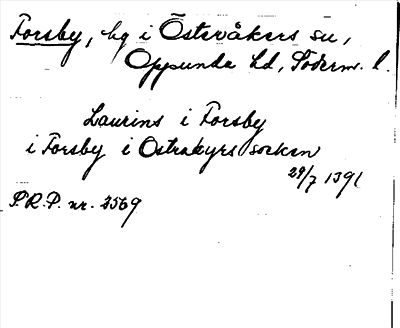 Forsby, by i Österåkers sn,
Oppunda hd, Söderm. l.
Laurins i Forsby
i Forsby i Ostrakyrs sokn
29/7 1391
P.R.P. nr. 2569